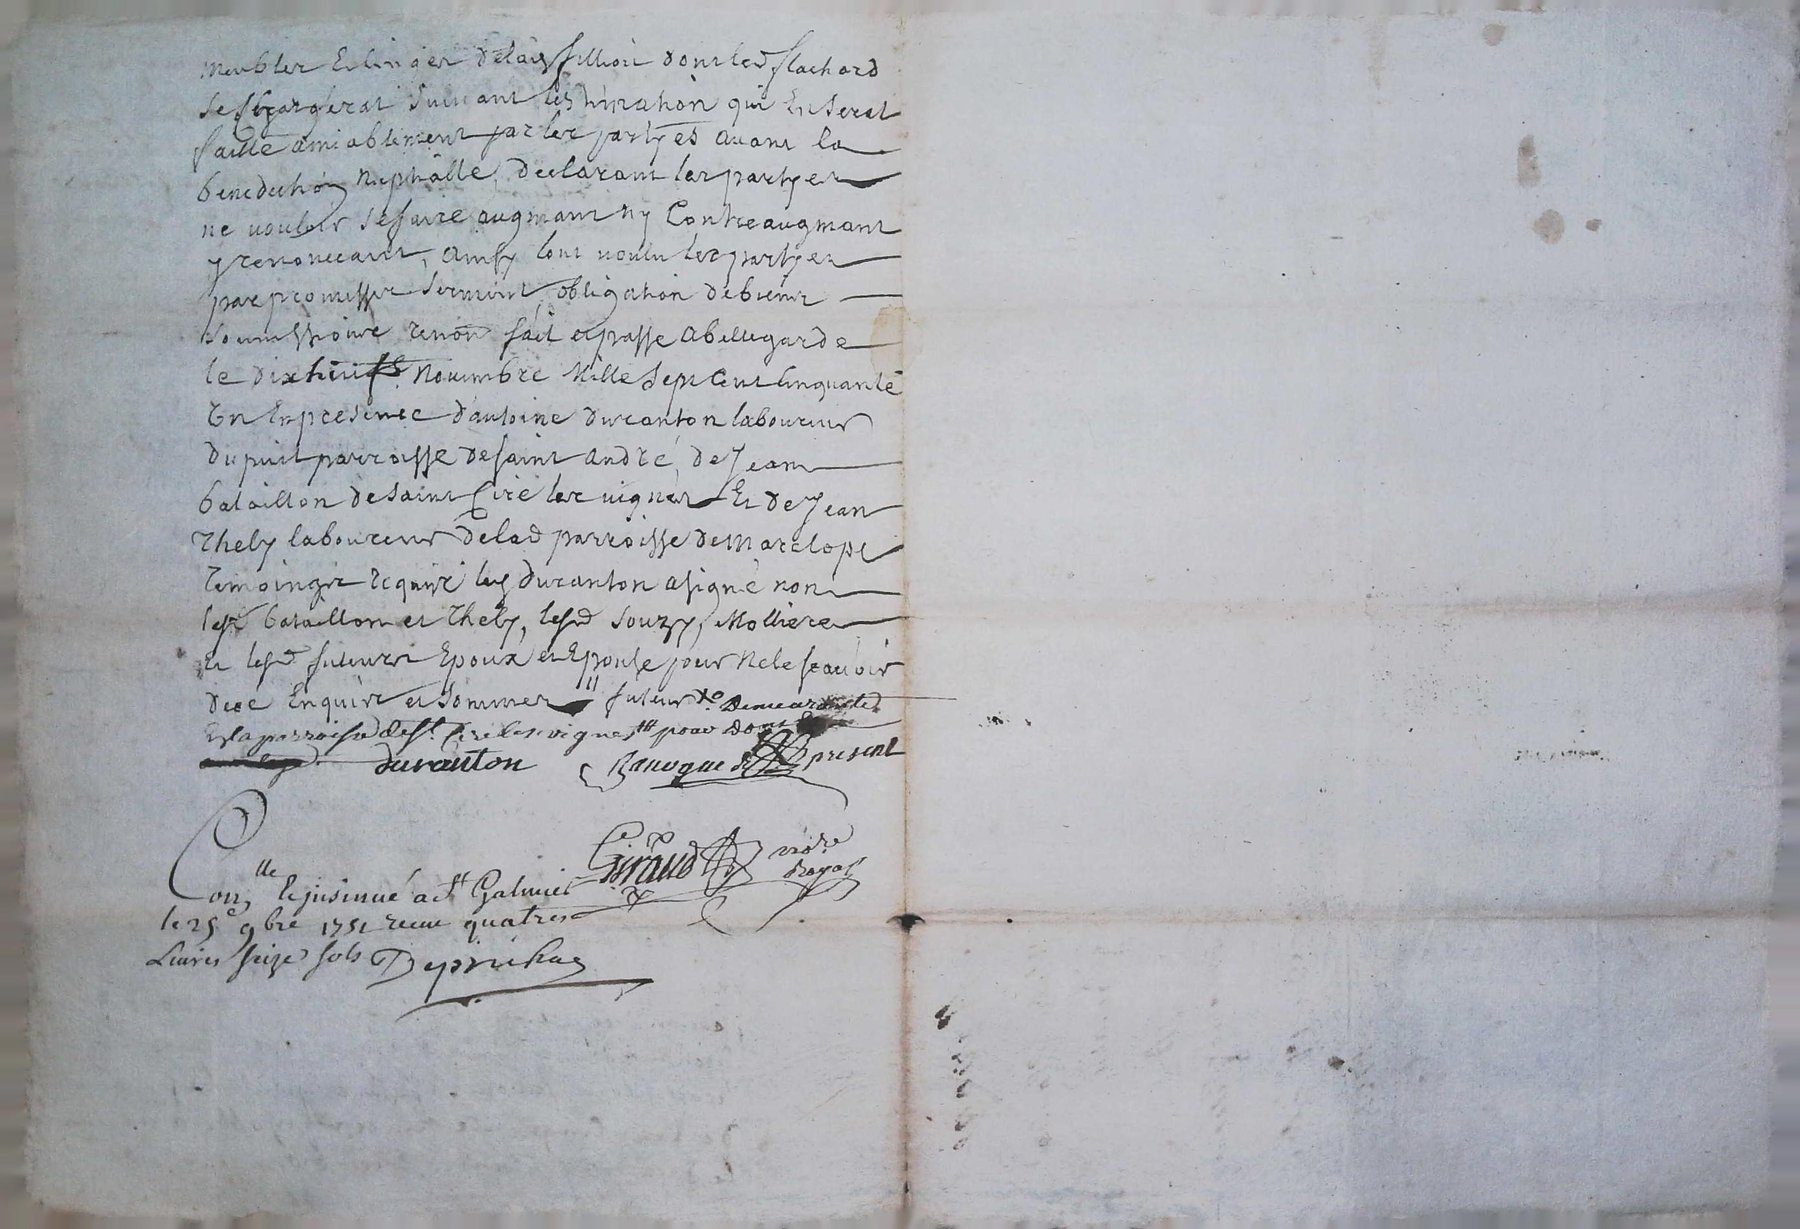 Meubles Et linges delad fillion dont led flachard
se chargerat suivant lestimation qui En serat
faitte amiablement par les partyes avant la
benediction Nuptialle, declarant les partyes
ne vouloir se faire augmant ny Contreaugmant
y renonceant, ainsy lont voulu les partyes
par promesses serment obligation de biens
soumissions renon fait et passe a bellegarde
le dixhuit Novembre Mille sept Cent Cinquante
Un En presence dantoine duranton laboureur
du puit parroisse de saint andré, de Jean
bataillon de saint Cire les vignes Et de Jean
Thely laboureur de lad parroisse de Marclopt
temoings requis led duranton a signé non
lesd bataillon et Thely, lesd souzy, Molliere
Et lesd futeurs Epoux et Epouse pour ne le scavoir
de ce Enquis et sommes // futeur
En la parroisse de st Cire les vignes pour dont
duranton Ranvque present
Giraud no.re Royal
Con.lle et insinué a st Galmier
le 25e 9bre 1751 receu quatres
Livres seize sols